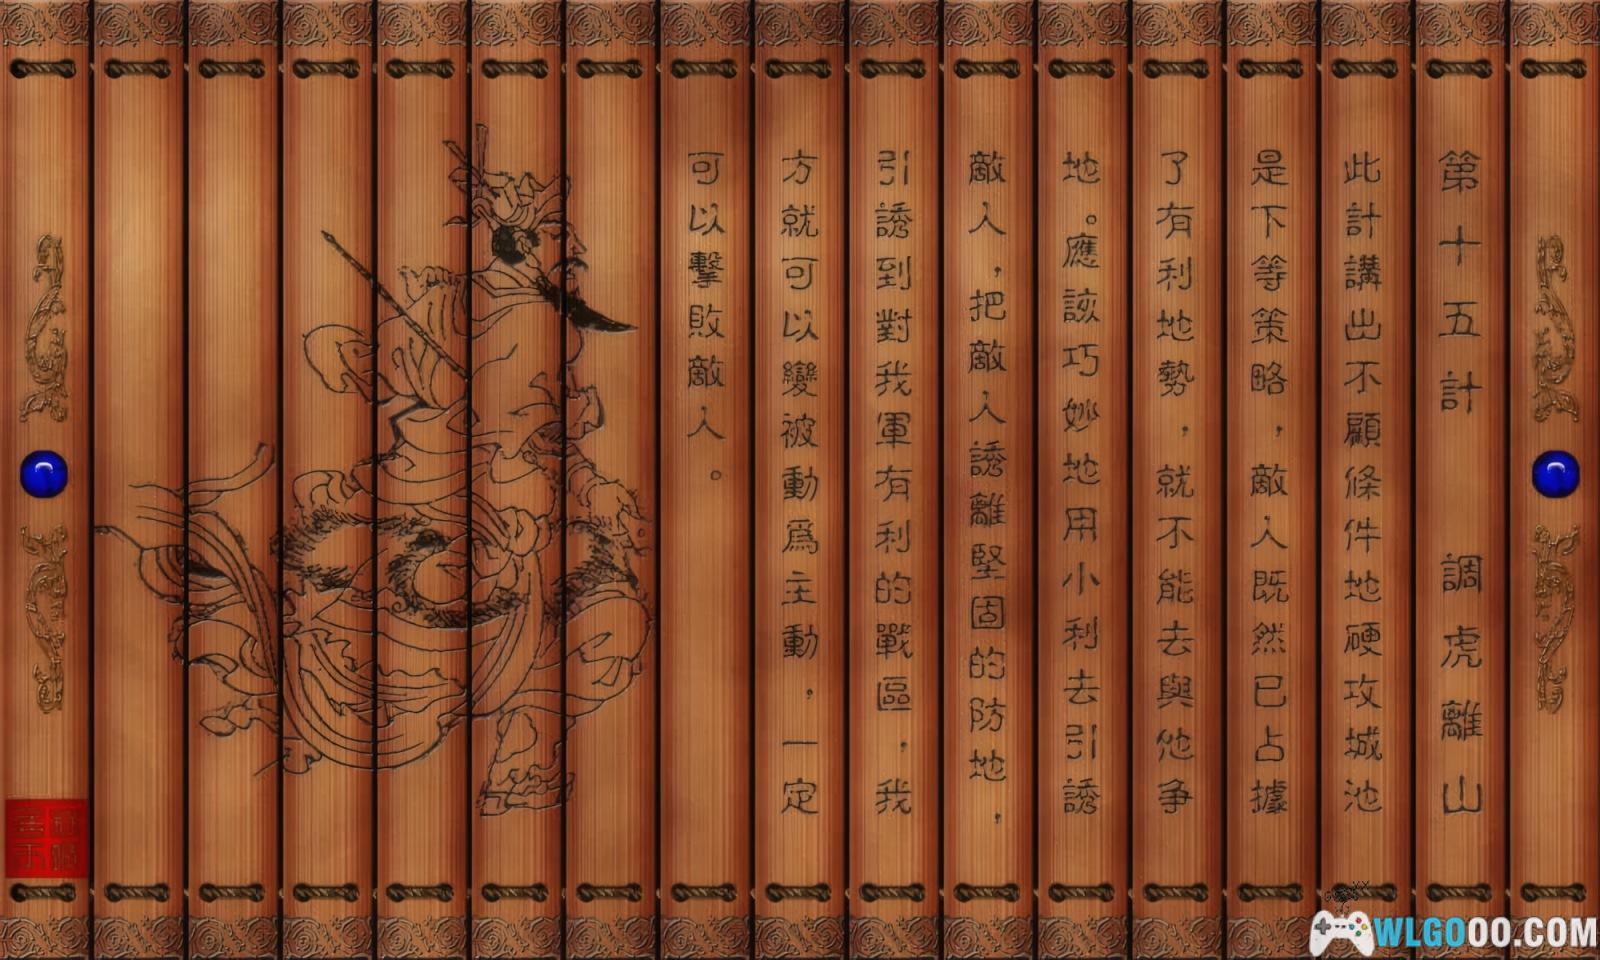 第十五計 調虎離山
此計講出不顧條件地硬攻城池
是下等策略，敵人既然已占據
了有利地勢，就不能去與他争
地。應該巧妙地用小利去引誘
敵人，把敵人誘離堅固的防地，
引誘到對我軍有利的戰區，我
方就可以變被動爲主動，一定
可以擊敗敵人。
WLGOOO.COM